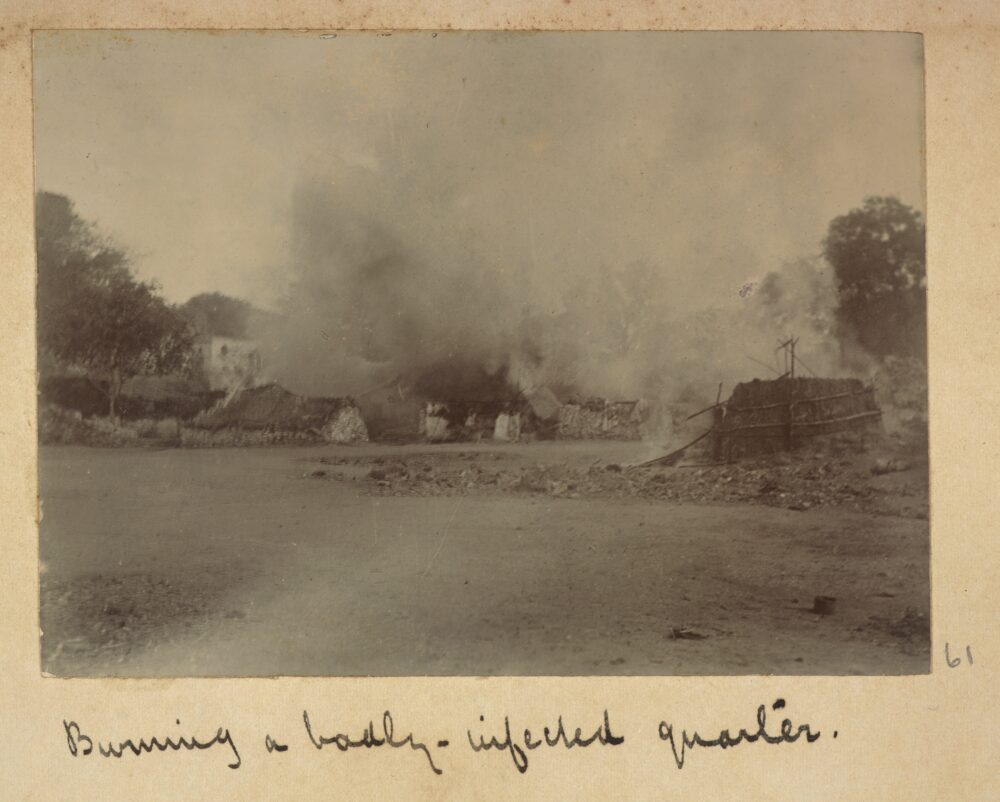 61
Burning a badly-infected quarter.